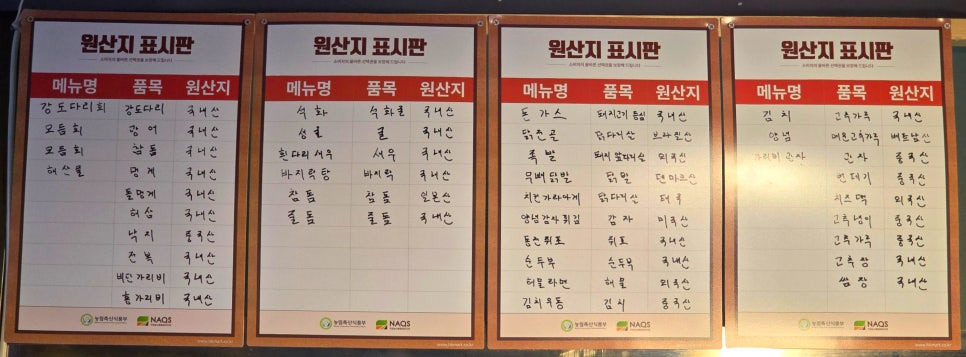 원산지 표시판
소비자의 올바른 선택권을 보장해 드립니다
메뉴명 품목 원산지
강도다리회 강도다리 국내산
모듬회 광어 국내산
모듬회 참돔 국내산
해산물 멍게 국내산
돌멍게 국내산
해삼 국내산
낙지 중국산
전복 국내산
비단가리비 국내산
홍가리비 국내산
농림축산식품부 NAQS
원산지 표시판
소비자의 올바른 선택권을 보장해 드립니다
메뉴명 품목 원산지
석화 석화굴 국내산
생굴 굴 국내산
흰다리새우 새우 국내산
바지락탕 바지락 국내산
참돔 참돔 일본산
줄돔 줄돔 국내산
농림축산식품부 NAQS
원산지 표시판
소비자의 올바른 선택권을 보장해 드립니다
메뉴명 품목 원산지
돈가스 돼지고기 등심 국내산
닭전골 닭다리살 브라질산
족발 돼지 앞다리살 외국산
무뼈닭발 닭발 덴마르산
치킨가라아게 닭다리살 태국
양념감자튀김 감자 미국산
동전쥐포 쥐포 국내산
순두부 순두부 국내산
해물라면 해물 외국산
김치우동 김치 중국산
농림축산식품부 NAQS
원산지 표시판
소비자의 올바른 선택권을 보장해 드립니다
메뉴명 품목 원산지
김치 고추가루 국내산
양념 매운고추가루 베트남산
가리비관자 관자 중국산
번데기 중국산
치즈떡 외국산
고추냉이 중국산
고추가루 중국산
고추장 국내산
쌈장 국내산
농림축산식품부 NAQS